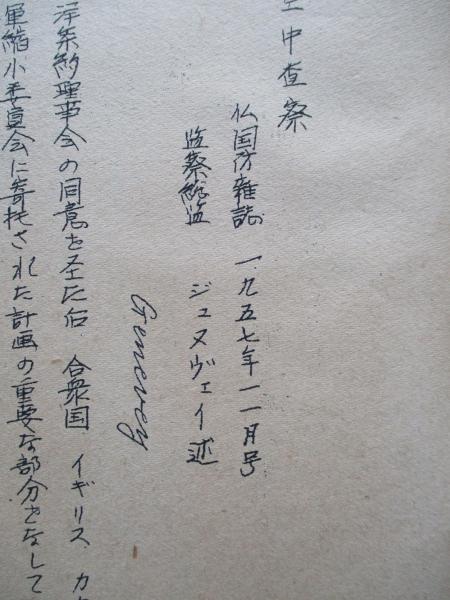 空中査察
仏国防雑誌 一九五七年一一月号
監察総監 ジュヌヴェイ述
Genevey
洋条約理事会の同意を圣た后 合衆国 イギリス カ
軍縮小委員会に寄托された計画の重要な部分をなして